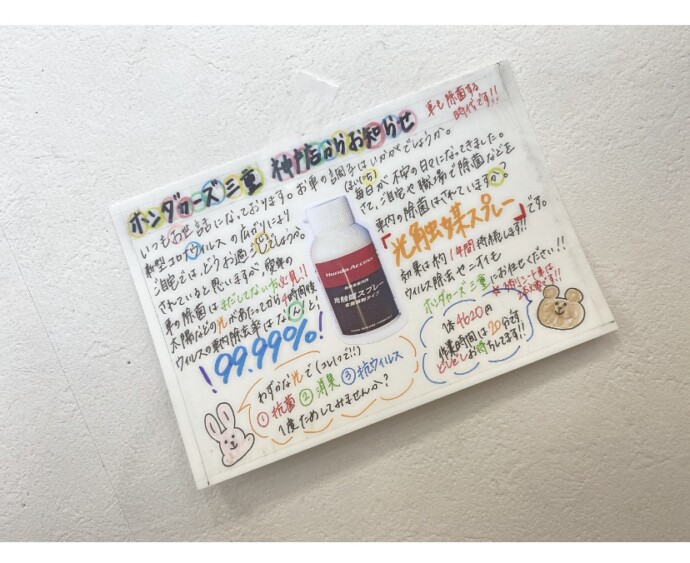 ホンダカーズ三重 神戸店からお知らせ
車も除菌する
時代です!!
いつもお世話になっております。お車の調子はいかがでしょうか。
新型コロナウイルスの広がりにより
毎日が不安の日々になってきました。
ご自宅では、どうお過ごしでしょうか
さて、ご自宅や職場で除菌などを
されていると思いますが、愛車の
車内の除菌はされていますか?
車の除菌はまだしてない方必見!!
「光触媒スプレー」です。
太陽などの光があたってから 時間後
ウイルスの車内除去率はなんと、
!99.99%!
効果は約1年間持続します!!
ウイルス除去やニオイも
ホンダカーズ三重にお任せください!!
Honda Access
光触媒スプレー
わずかな光で(コレ1つで!!)
①抗菌 ②消臭 ③抗ウイルス
1度ためしてみませんか?
1本4620円
作業時間は20分です
どしどしお待ちしてます!!